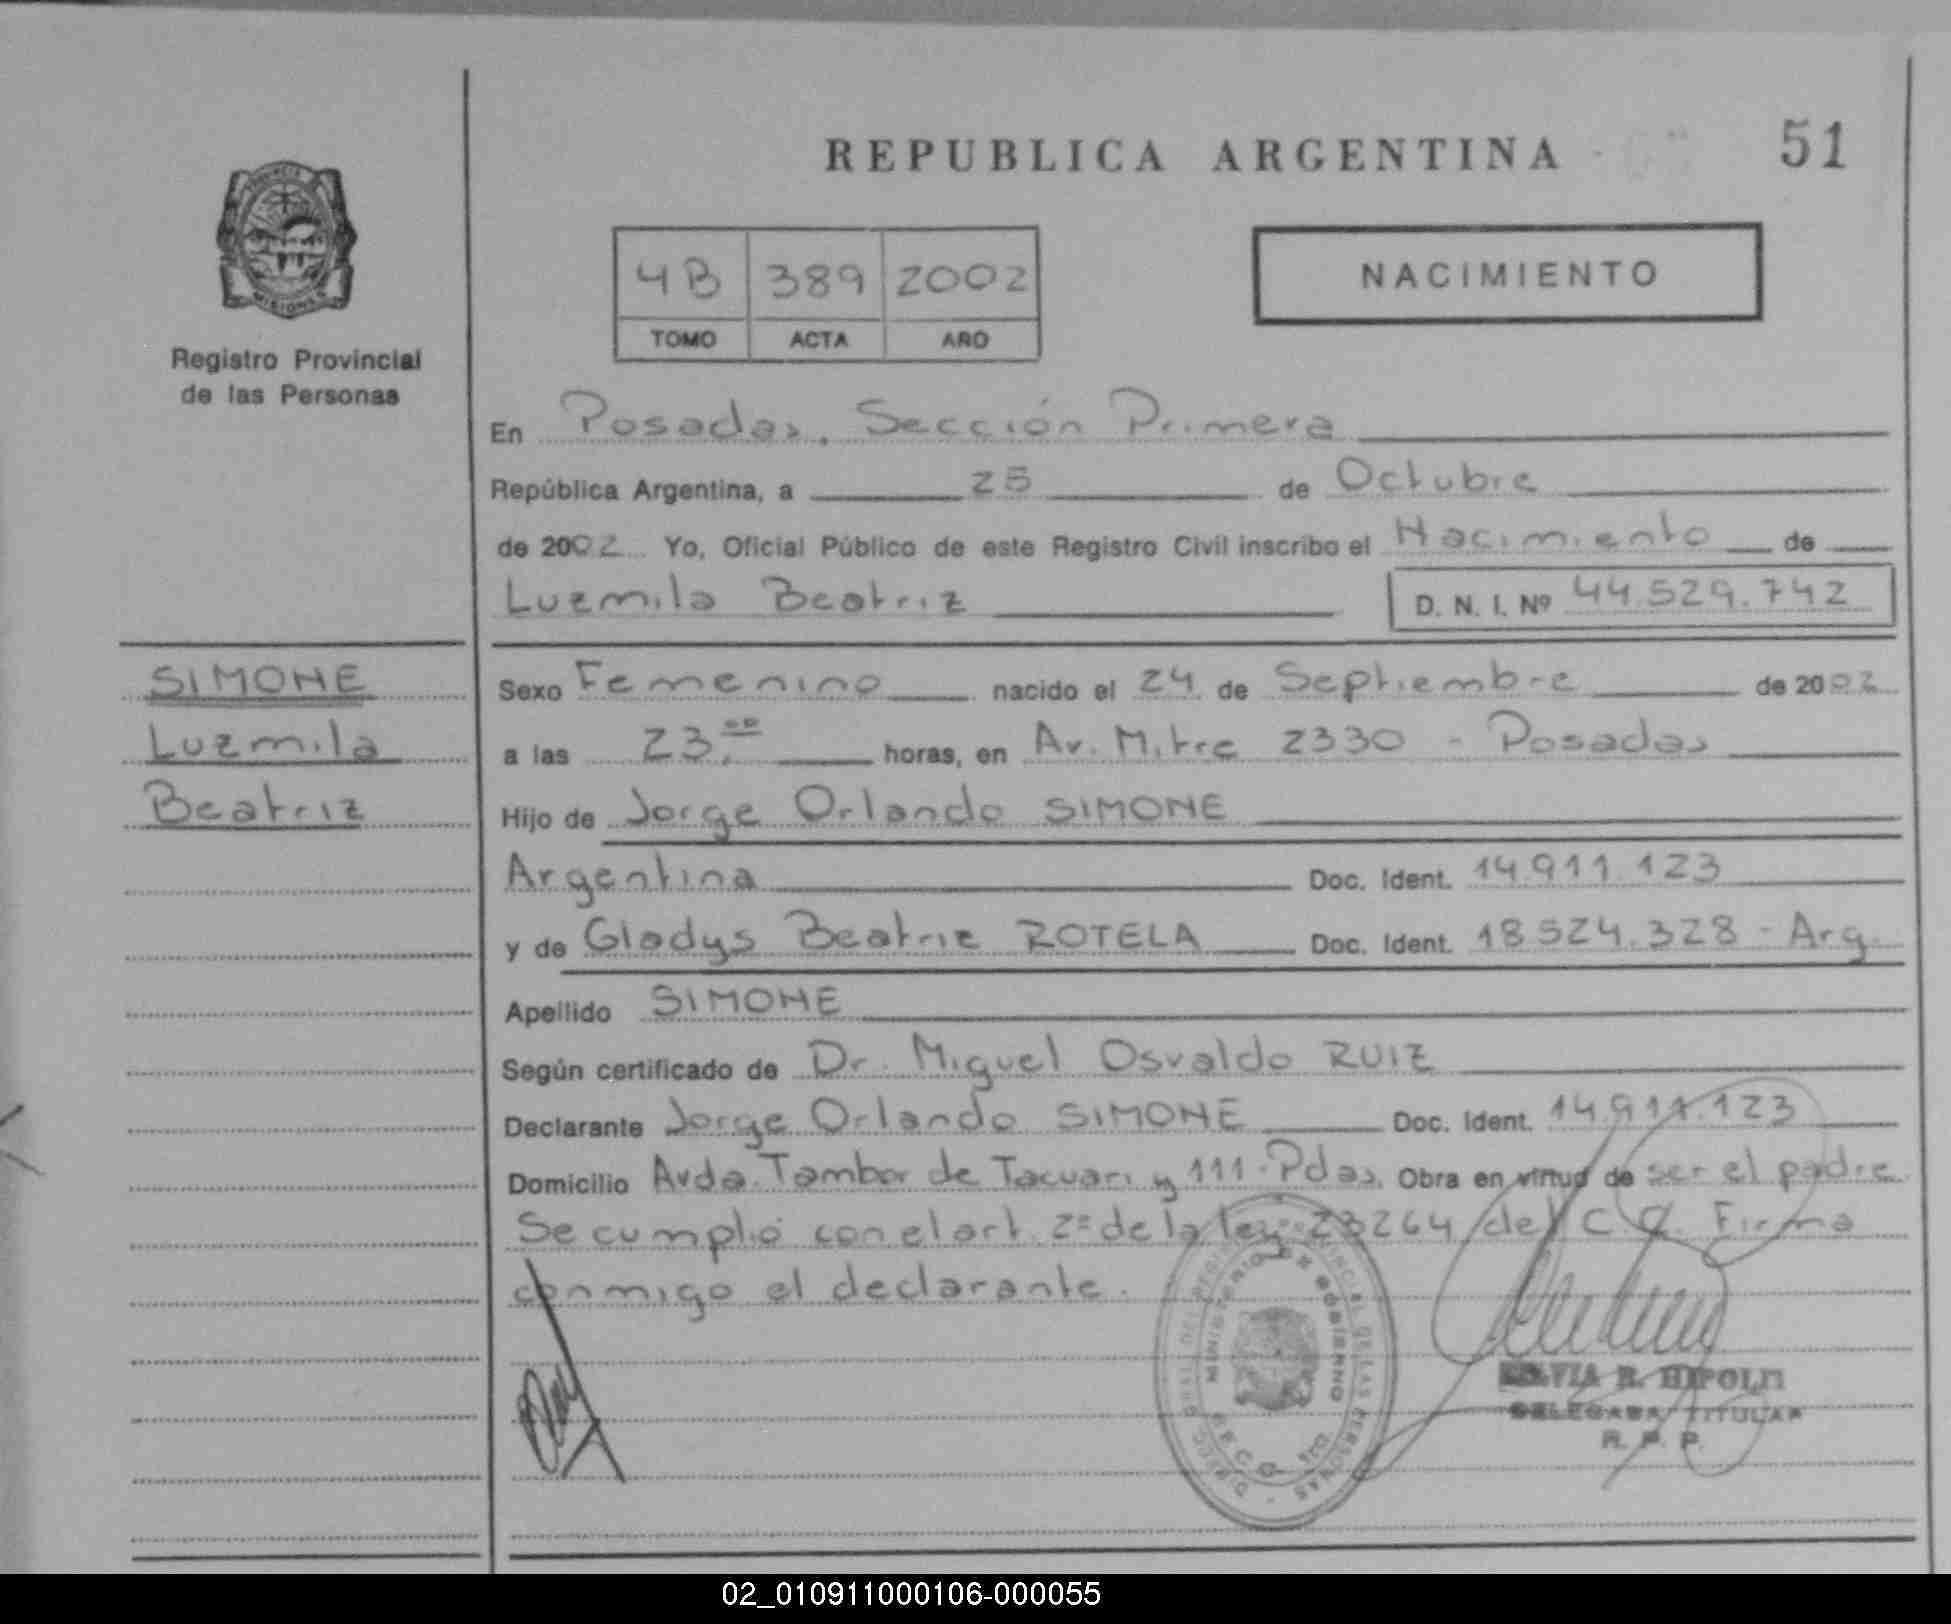 REPUBLICA ARGENTINA
51
4B 389 2002
TOMO ACTA AÑO
NACIMIENTO
Registro Provincial
de las Personas
En Posadas, Sección Primera
República Argentina, a 25 de Octubre
de 2002 Yo, Oficial Público de este Registro Civil inscribo el Nacimiento de
Luzmila Beatriz D. N. I. Nº 44.529.742
SIMONE
Luzmila
Beatriz
Sexo Femenino nacido el 24 de Septiembre de 2002
a las 23,00 horas, en Av. Mitre 2330 - Posadas
Hijo de Jorge Orlando SIMONE
Argentina Doc. Ident. 14.911.123
y de Gladys Beatriz ROTELA Doc. Ident. 18.524.328 - Arg.
Apellido SIMONE
Según certificado de Dr. Miguel Osvaldo RUIZ
Declarante Jorge Orlando SIMONE Doc. Ident. 14.911.123
Domicilio Avda. Tambor de Tacuari y 111 - Pdas, Obra en virtud de ser el padre
Se cumplió con el art. 2º de la ley 23264 del C C. Firma
conmigo el declarante.
MINISTERIO DE GOBIERNO
R. HIPOLITI
DELEGADA TITULAR
R. P. P.
02_010911000106-000055